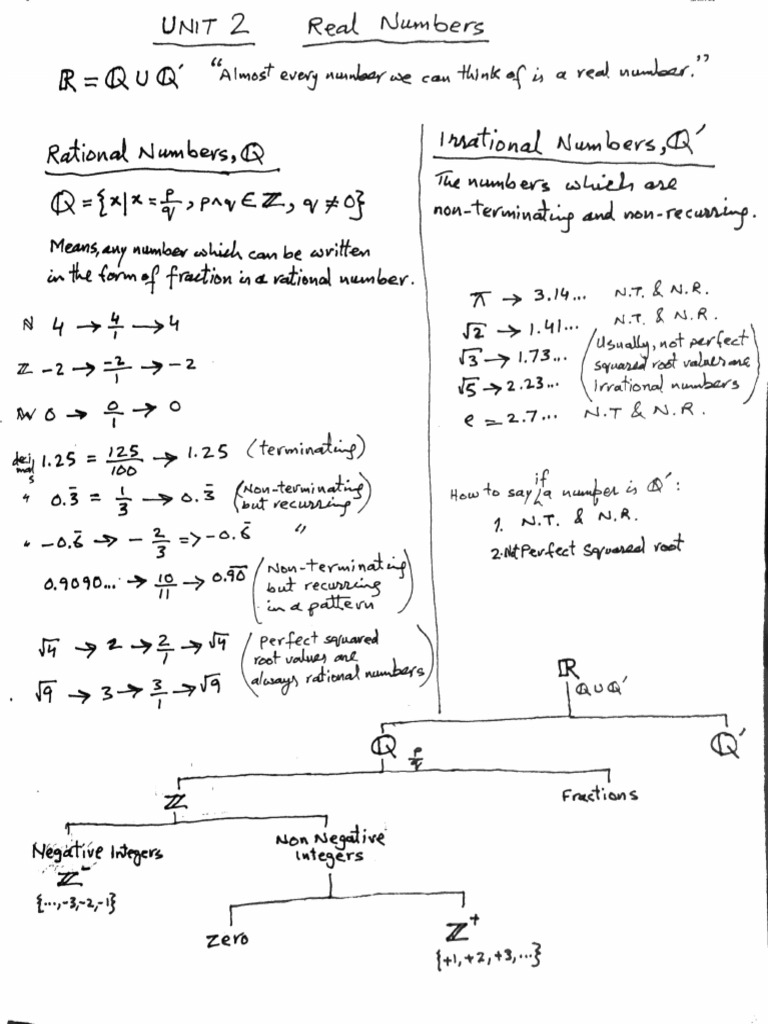 UNIT 2 Real Numbers
ℝ = ℚ ∪ ℚ′ "Almost every number we can think of is a real number."
Rational Numbers, ℚ
ℚ = {x|x = p/q, p∧q ∈ ℤ, q ≠ 0}
Means, any number which can be written
in the form of fraction is a rational number.
N 4 → 4/1 → 4
ℤ -2 → -2/1 → -2
W 0 → 0/1 → 0
decimals 1.25 = 125/100 → 1.25 (terminating)
" 0.3̄ = 1/3 → 0.3̄ (Non-terminating
but recurring)
" -0.6̄ → -2/3 => -0.6̄ "
0.9090... → 10/11 → 0.9̅0̅ (Non-terminating
but recurring
in a pattern)
√4 → 2 → 2/1 → √4 (perfect squared
root values are
always rational numbers)
√9 → 3 → 3/1 → √9
Irrational Numbers, ℚ′
The numbers which are
non-terminating and non-recurring.
π → 3.14... N.T. & N.R.
√2 → 1.41... N.T. & N.R.
√3 → 1.73... (Usually, not perfect
squared root values are
√5 → 2.23... irrational numbers)
e = 2.7... N.T & N.R.
How to say if a number is ℚ′:
1. N.T. & N.R.
2. Not Perfect Squared root
ℝ
ℚ∪ℚ′
ℚ p/q ℚ′
ℤ Fractions
Negative Integers Non Negative
Integers
ℤ⁻
{...,-3,-2,-1}
Zero ℤ⁺
{+1,+2,+3,...}